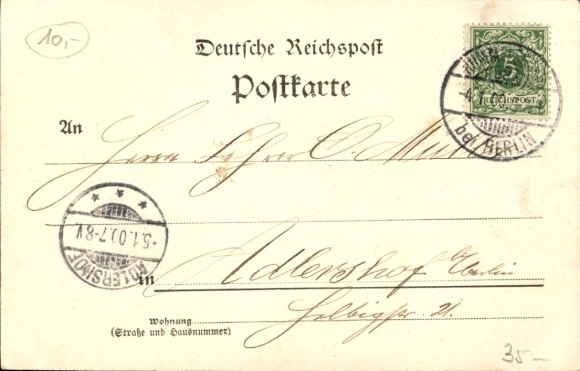 10,-
Deutsche Reichspost
Postkarte
5
REICHSPOST
bei BERLIN
An
Herrn
-5.1.00.7-8V.
ADLERSHOF
in Adlershof b/Berlin
Wohnung
(Straße und Hausnummer)
Helbigstr. 21.
35-